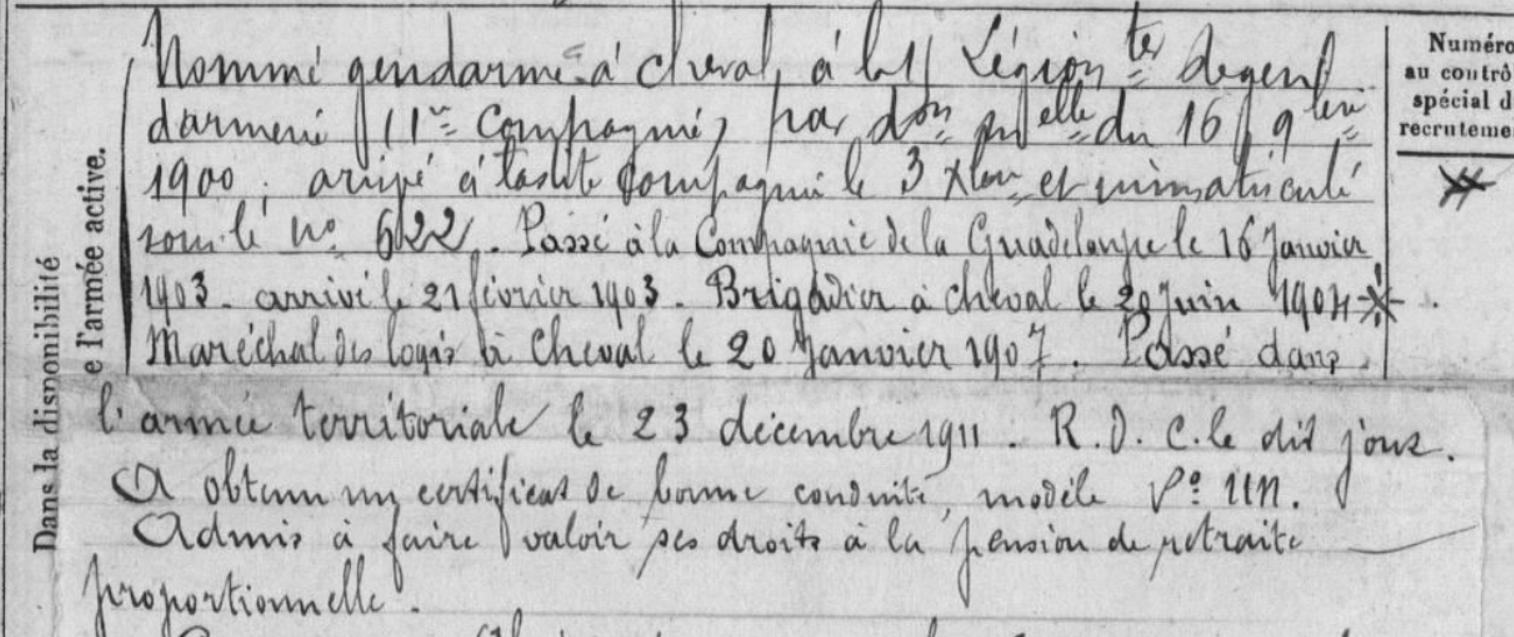 Nommé gendarme à cheval, à la 11e Légion ter de gen
darmerie (11e Compagnie) par don mielle du 16 9bre
1900, arrivé à la dite Compagnie le 3 Xbre et immatriculé
sous le no 622. Passé à la Compagnie de la Guadeloupe le 16 Janvier
1903. arrivé le 21 février 1903. Brigadier à cheval le 20 Juin 1904
Maréchal des logis à cheval le 20 Janvier 1907. Passé dans
l'armée territoriale le 23 décembre 1911. R. D. C. le dit jour.
A obtenu un certificat de bonne conduite, modèle No UN.
Admis à faire valoir ses droits à la pension de retraite
proportionnelle.
Dans la disponibilité
e l'armée active.
Numéro
au contrô
spécial d
recruteme